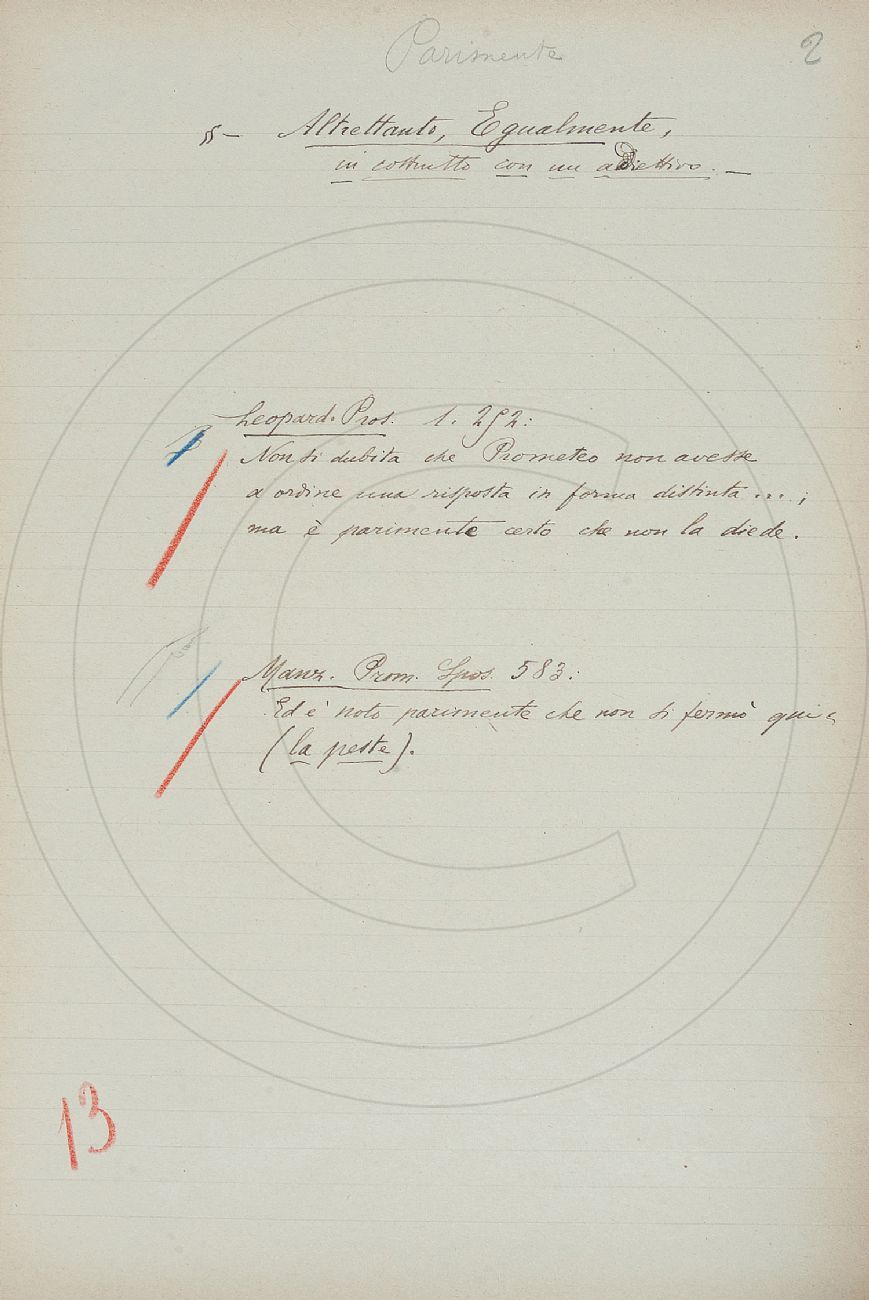 Parimente
2
§ – Altrettanto, Egualmente,
in costrutto con un addiettivo. –
Leopard. Pros. 1. 252:
Non si dubita che Prometeo non avesse
a ordine una risposta in forma distinta ... ;
ma è parimente certo che non la diede.
Manz. Prom. Spos. 583:
Ed è noto parimente che non si fermò qui
(la peste).
13